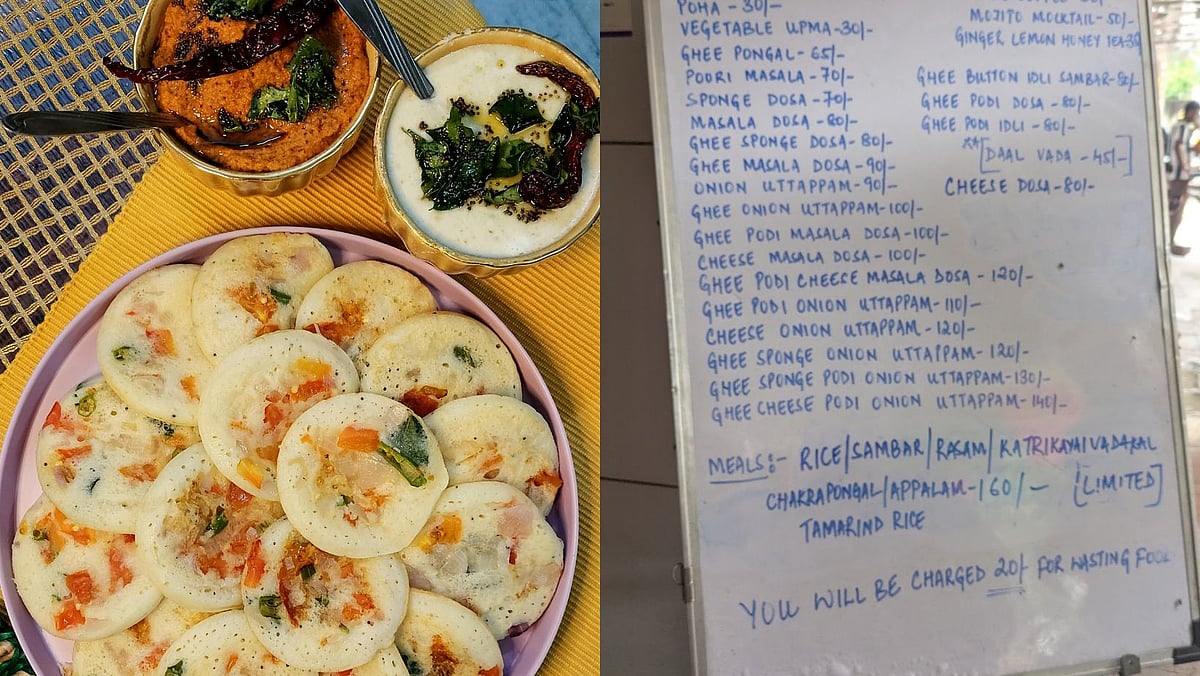 POHA - 30/-
VEGETABLE UPMA - 30/-
GHEE PONGAL - 65/-
POORI MASALA - 70/-
SPONGE DOSA - 70/-
MASALA DOSA - 80/-
GHEE SPONGE DOSA - 80/-
GHEE MASALA DOSA - 90/-
ONION UTTAPPAM - 90/-
GHEE ONION UTTAPPAM - 100/-
GHEE PODI MASALA DOSA - 100/-
CHEESE MASALA DOSA - 100/-
GHEE PODI CHEESE MASALA DOSA - 120/-
GHEE PODI ONION UTTAPPAM - 110/-
CHEESE ONION UTTAPPAM - 120/-
GHEE SPONGE ONION UTTAPPAM - 120/-
GHEE SPONGE PODI ONION UTTAPPAM - 130/-
GHEE CHEESE PODI ONION UTTAPPAM - 140/-
MOJITO MOCKTAIL - 50/-
GINGER LEMON HONEY TEA-
GHEE BUTTON IDLI SAMBAR -
GHEE PODI DOSA - 80/-
GHEE PODI IDLI - 80/-
**[DAAL VADA - 45/-]
CHEESE DOSA - 80/-
MEALS:- RICE/SAMBAR/RASAM/KATRIKAYAIVADAKAL
CHAKRAPONGAL/APPALAM - 160/- [LIMITED]
TAMARIND RICE
YOU WILL BE CHARGED 20/- FOR WASTING FOOD